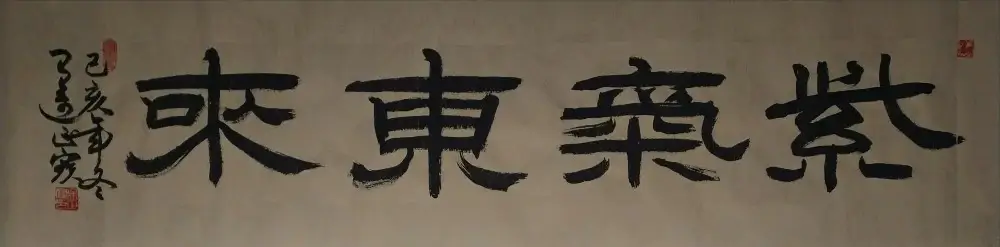 紫氣東來
己亥年冬